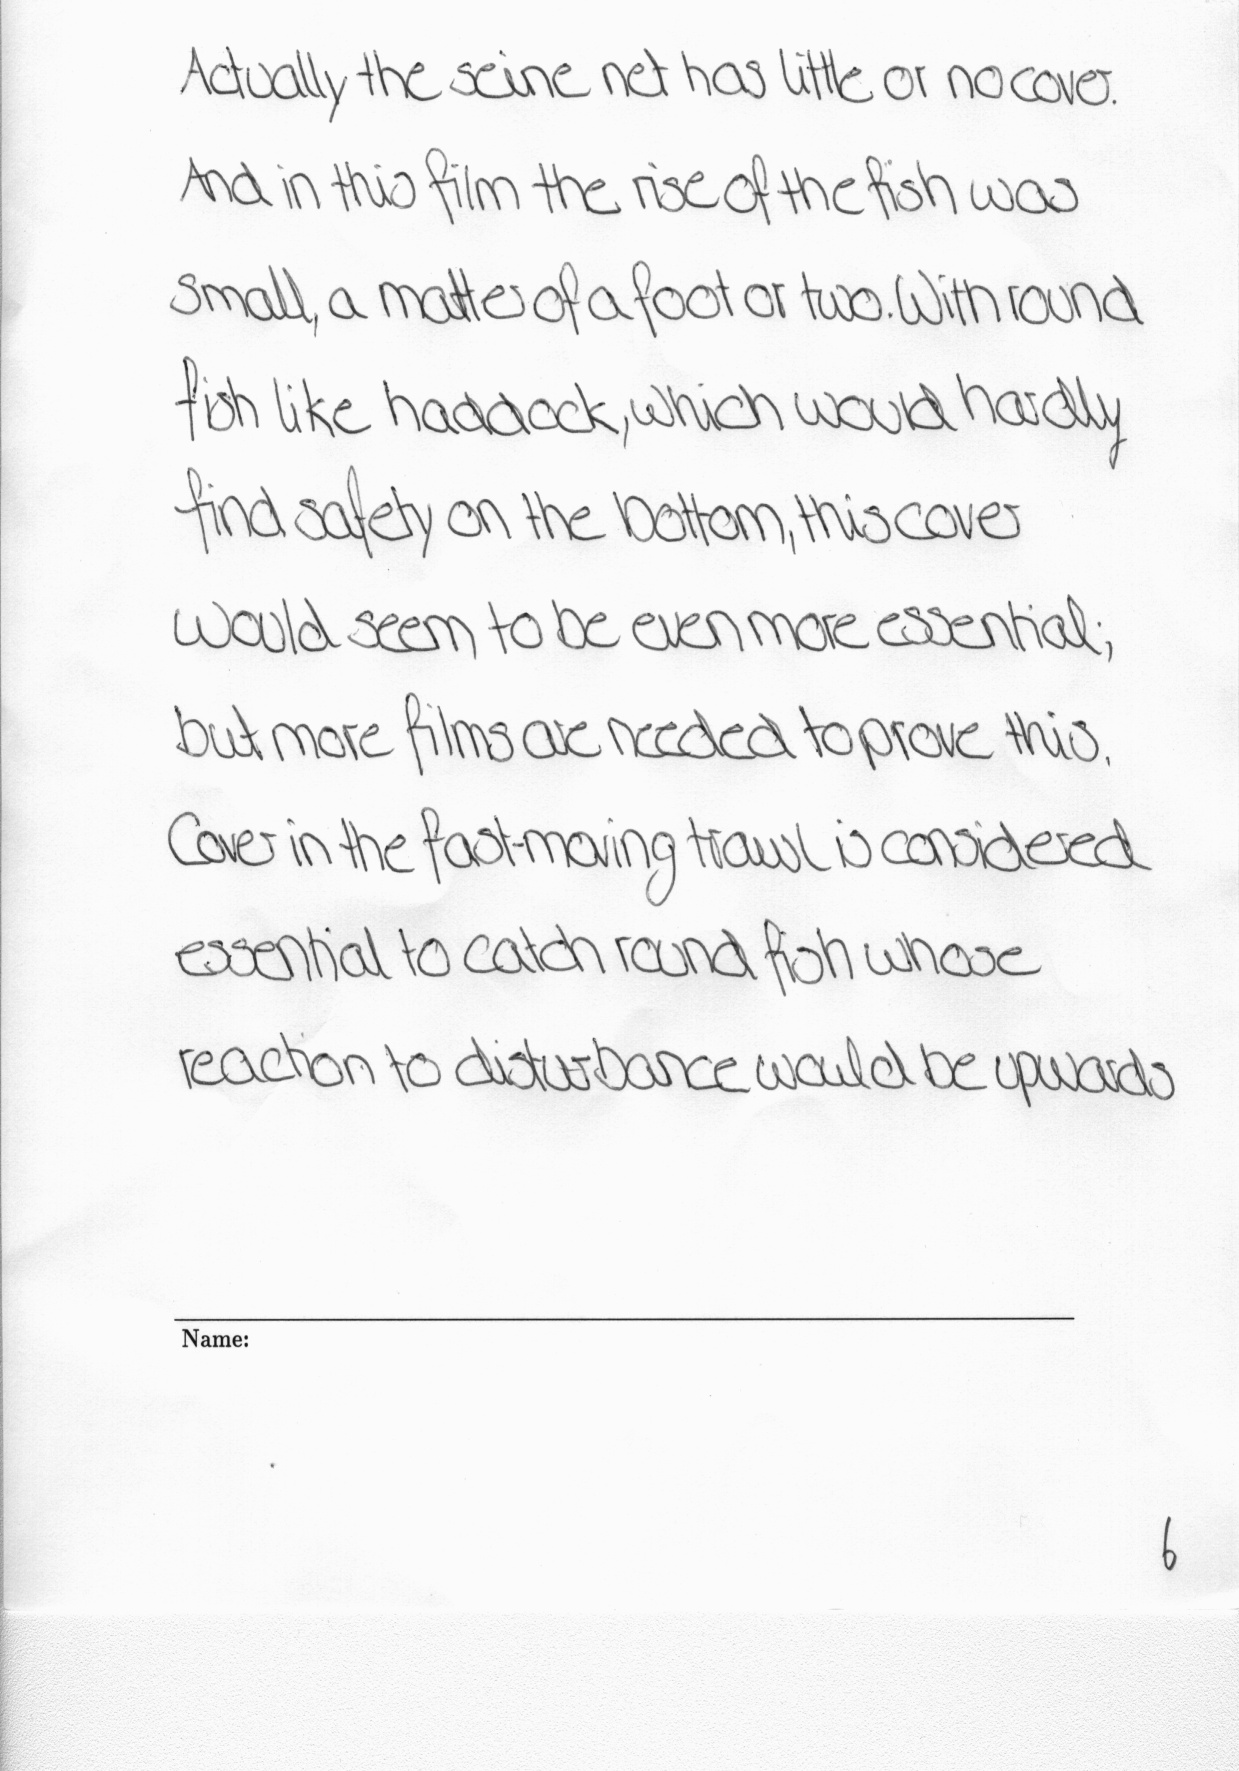 Actually the seine net has little or no cover.
And in this film the rise of the fish was
small, a matter of a foot or two. With round
fish like haddock, which would hardly
find safety on the bottom, this cover
would seem to be even more essential;
but more films are needed to prove this.
Cover in the fast-moving trawl is considered
essential to catch round fish whose
reaction to disturbance would be upwards
Name:
6